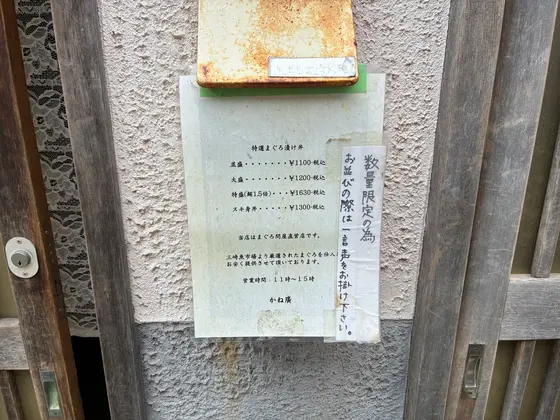 特選まぐろ漬け丼
並盛・・・・・・・￥1100-税込
大盛・・・・・・・￥1200-税込
特盛(鮪1.5倍)・・・￥1630-税込
スキ身丼・・・・・￥1300-税込
当店はまぐろ問屋直営店です。
三崎魚市場より厳選されたまぐろを仕入
お安く提供させて頂いております。
営業時間：11時～15時
かね廣
数量限定の為
お並びの際は一言声をお掛け下さい。